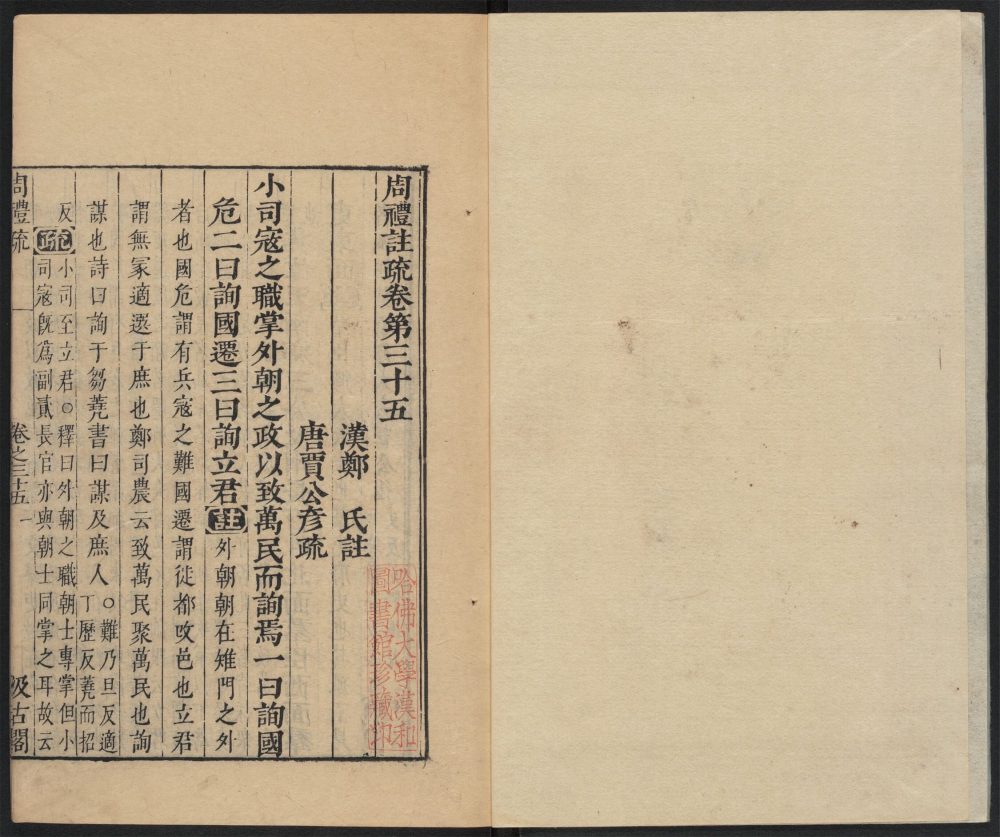 周禮註疏卷第三十五
漢鄭 氏註
唐賈公彥疏
哈佛大學漢和
圖書館珍藏印
小司寇之職掌外朝之政以致萬民而詢焉一曰詢國
危二曰詢國遷三曰詢立君【註】外朝朝在雉門之外
者也國危謂有兵寇之難國遷謂徙都改邑也立君
謂無冢適選于庶也鄭司農云致萬民聚萬民也詢
謀也詩曰詢于芻蕘書曰謀及庶人○難乃旦反適
丁歷反蕘而招
反【疏】小司至立君○釋曰外朝之職朝士專掌但小
司寇旣爲副貳長官亦與朝士同掌之耳故云
周禮疏
卷之三十五
一
汲古閣